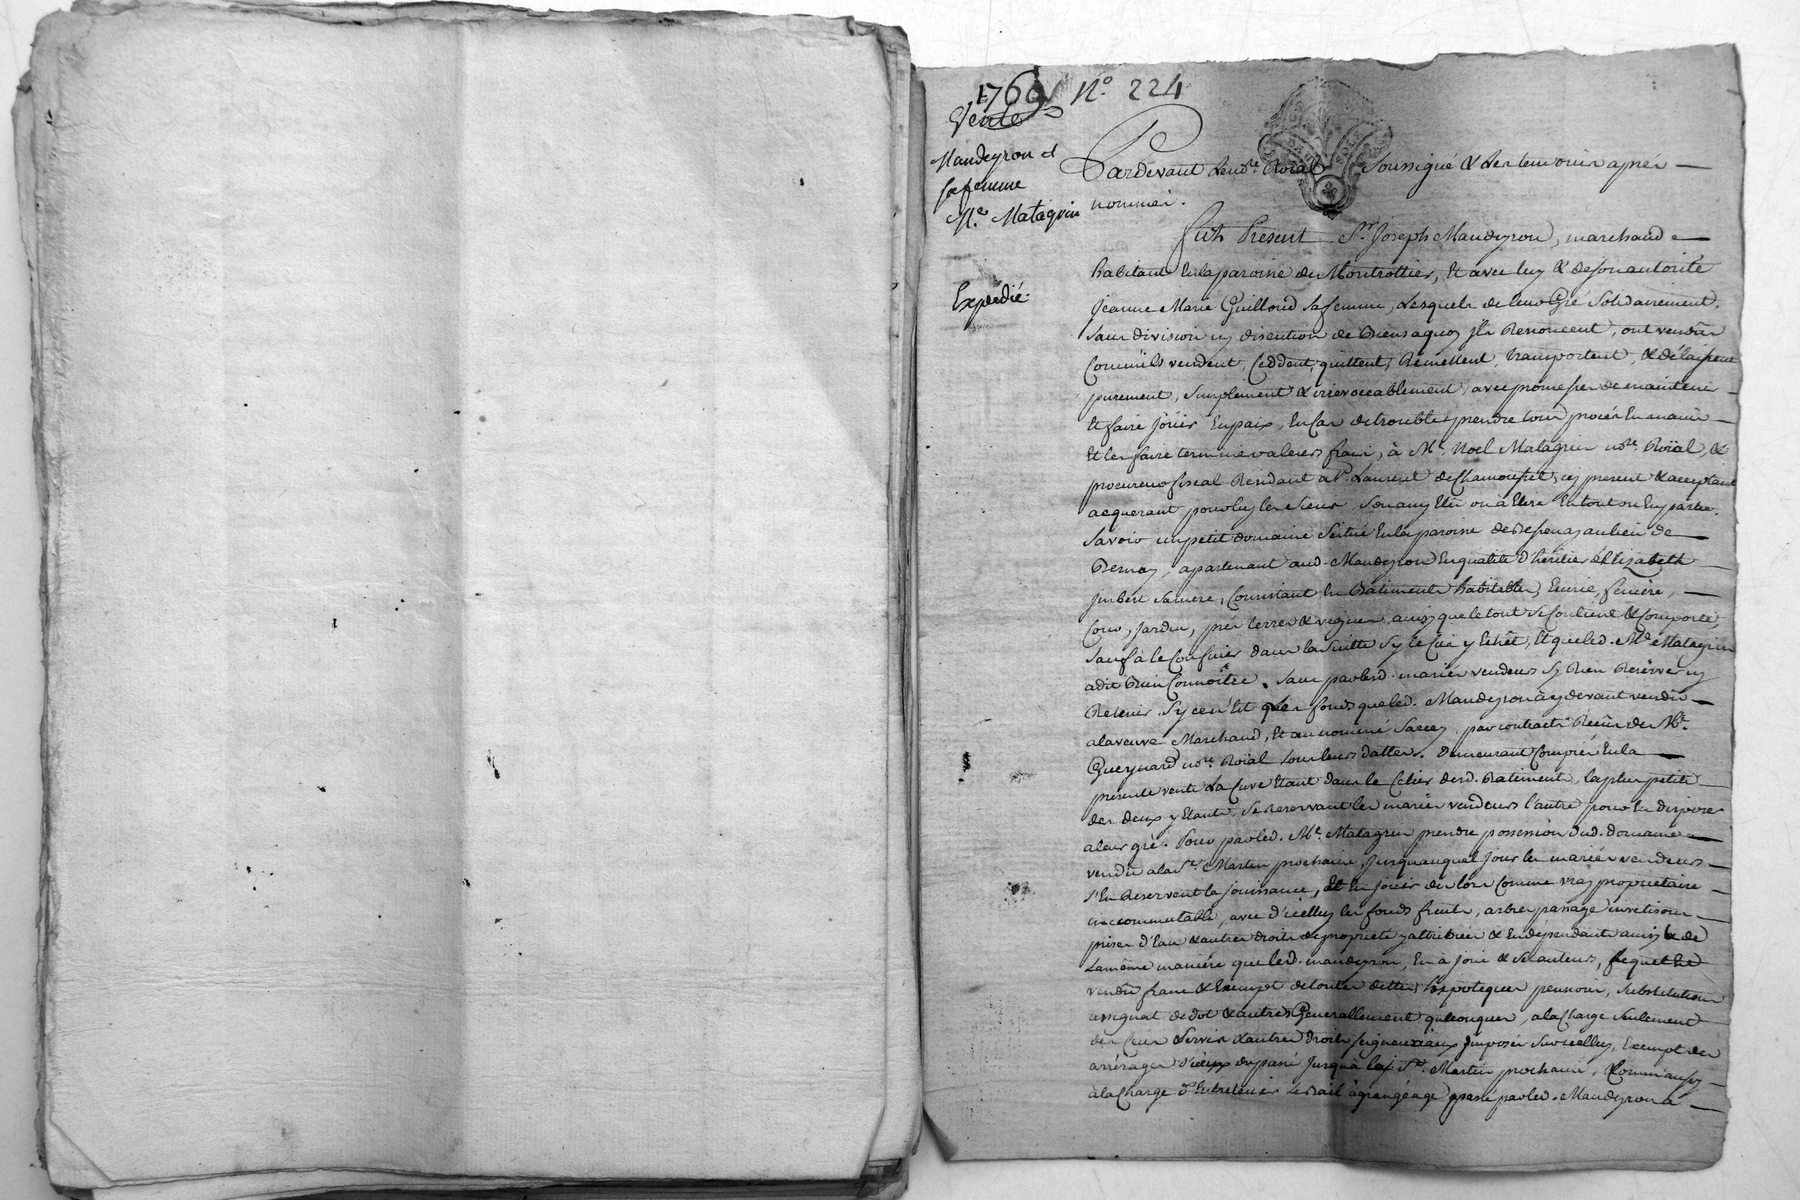 1769 N° 224
Vente
Maudeyron et
sa femme
Me. Matagrin
Expedié.
Pardevant le no.re Roïal soussigné & les temoins aprés
nommés.
Fut Présent Sr. Joseph Maudeyron, marchand
habitant en la paroisse de Montrottier, et avec luy & de son autorité
Jeanne Marie Guilloud sa femme, lesquels de leur Gré solidairement
sans division ny discution de Biens aquoy ils Renoncent, ont vendu
Comm'ils vendent, Ceddent, quittent, Remettent, transportent, & délaissent
purement, simplement & irrevocablement, avec promesses de maintenir
et faire joüir en paix, en Cas de trouble prendre tous procés en main
et les faire terminer a leurs frais, à Me. Noel Matagrin no.re Roïal, &
procureur fiscal Residant a St. Laurent de Chamousset, cy present & acceptant
aequerant pour luy les siens son amy élu ou à Elire en tout ou en partie.
Savoir un petit domaine scitué en la paroisse de au lieu de
apartenant aud. Maudeyron en qualité d'héritier d'Elizabeth
Jmbert sa mere, Consistant en Bâtiments habitables, Ecurie, féniere,
Cour, Jardin, prés terres & vignes, ainsy que le tout se Contient & Comporte,
sauf à le Confiner dans la suitte sy le Cas y Echêt, et que led. Me. Matagrin
a dit Bien Connoitre. Sans par lesd. mariés vendeurs sy Rien Reserver ny
Retenir sy ce n'est que les fonds que led. Maudeyron à cy devant vendu
a la veuve Marchand, et au nommé Sarcey, par contracts Recûs de Me.
Gueynard no.re Roïal sous leurs dattes. Demeurant Compris en la
présente vente La Cuve étant dans le Celier desd. Batiments, la plus petite
des deux y Etants, se reservant les mariés vendeurs l'autre pour en disposer
a leur gré. Pour par led. Me. Matagrin prendre possession dud. domaine
vendu a la St. Martin prochaine, jusqu'auquel jour les mariés vendeurs
s'en Reservent la joüissance, et en joüir dés lors Comme vray proprietaire
incommutable, avec d'icelluy les fonds fruits, arbres passage
prises d'Eau & autres droits de proprieté y attribués & en dependants ainsy & de
La même maniére que led. maudeyron, en à joui & ses auteurs,
vendu franc & Exempt de toutes dettes, hypoteques pensions, substitution
assignat de dot & autres Generallement quelconques, a la Charge seulement
des Cens Servis & autres droits seigneuriaux jmposés sur icelluy, Exempt des
arrérages d'iceux du passé jusqu'à la St. Martin prochaine, & comm'aussy
à la Charge d'Entretenir le Bail à grangéage passé par led. Maudeyron a